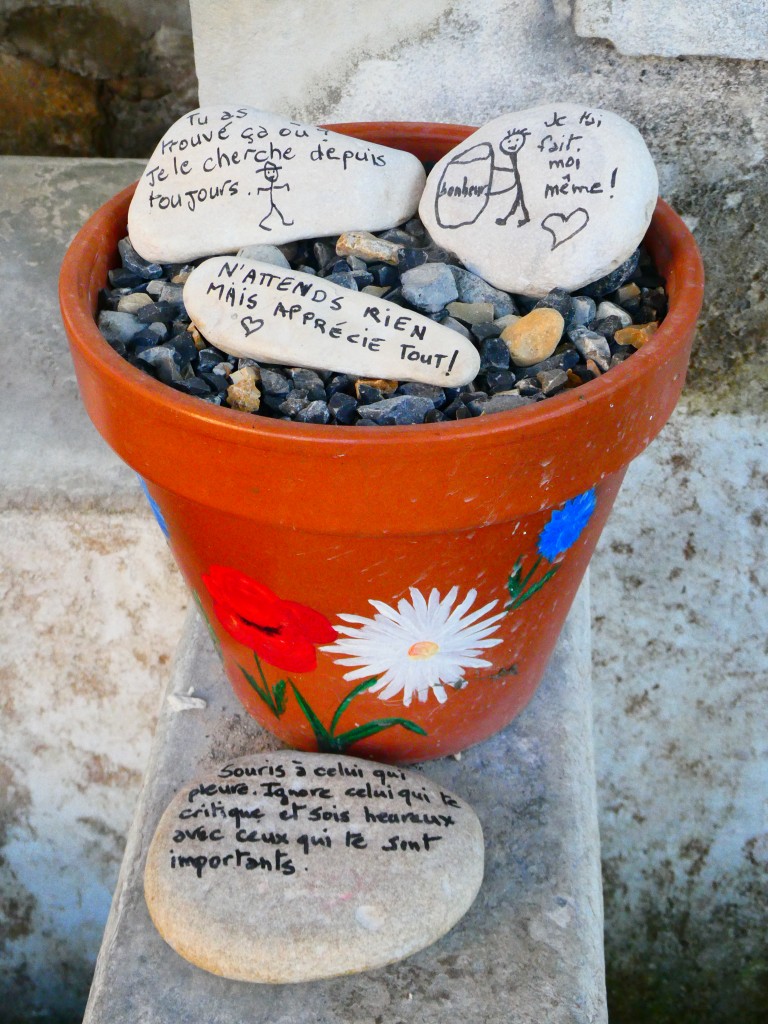 Tu as
trouvé ça où ?
Je le cherche depuis
toujours.
bonheur
Je l'ai
fait.
moi
même !
N'ATTENDS RIEN
MAIS APPRÉCIE TOUT !
Souris à celui qui
pleure. Ignore celui qui te
critique et sois heureux
avec ceux qui te sont
importants !